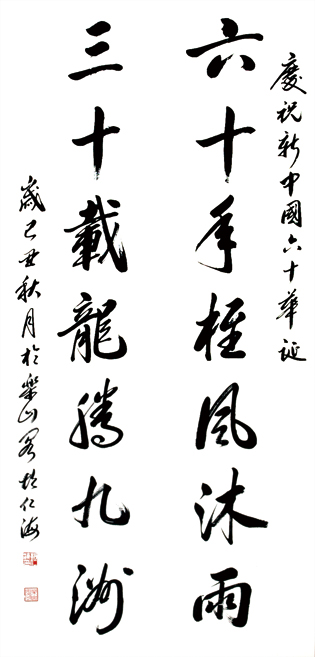 慶祝新中國六十華誕
六十年櫛風沐雨
三十載龍騰九洲
歲己丑秋月於樂山仁海